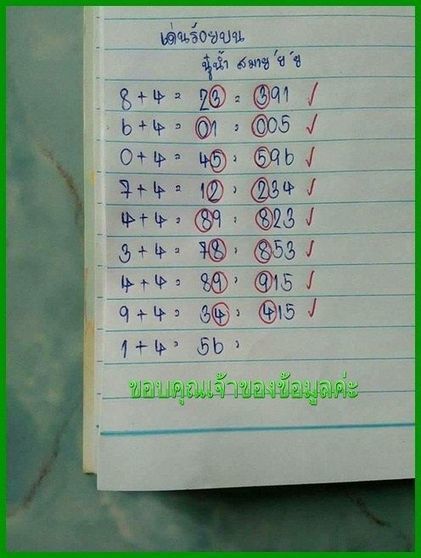 เด่นร้อยบน
8+4 = 23 = 391 ✓
6+4 = 01 = 005 ✓
0+4 = 45 = 596 ✓
7+4 = 12 = 234 ✓
4+4 = 89 = 823 ✓
3+4 = 78 = 853 ✓
4+4 = 89 = 915 ✓
9+4 = 34 = 415 ✓
1+4 = 56 =
ขอบคุณเจ้าของข้อมูลค่ะ